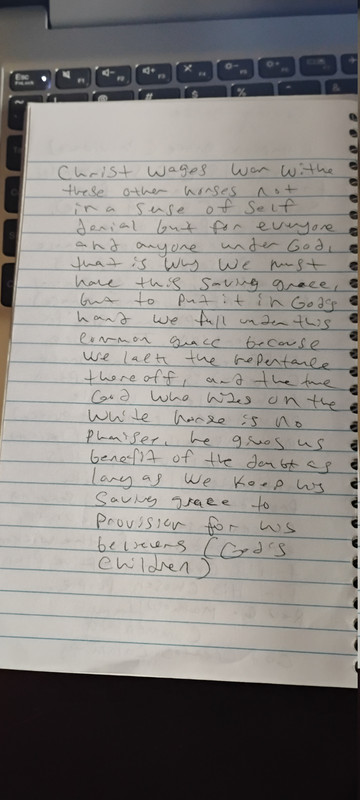 Esc
F1
F2
F3
F4
F5
F6
#
$
%
&
Christ wages war withe
these other horses not
in a sense of self
denial but for everyone
and anyone under God,
that is why we must
have this saving grace,
but to put it in God's
hand we fall under this
common grace because
we lack the repentance
thereoff, and the true
God who rides on the
white horse is no
pharisee, he gives us
benefit of the doubt as
long as we keep his
saving grace to
provision for his
believers (God's
children)